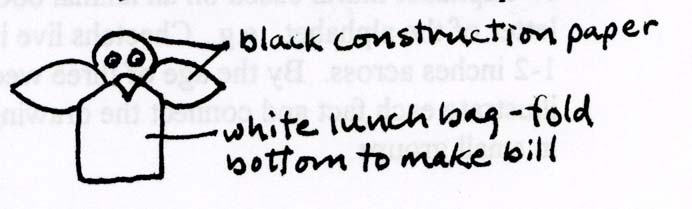 black construction paper
white lunch bag - fold
bottom to make bill